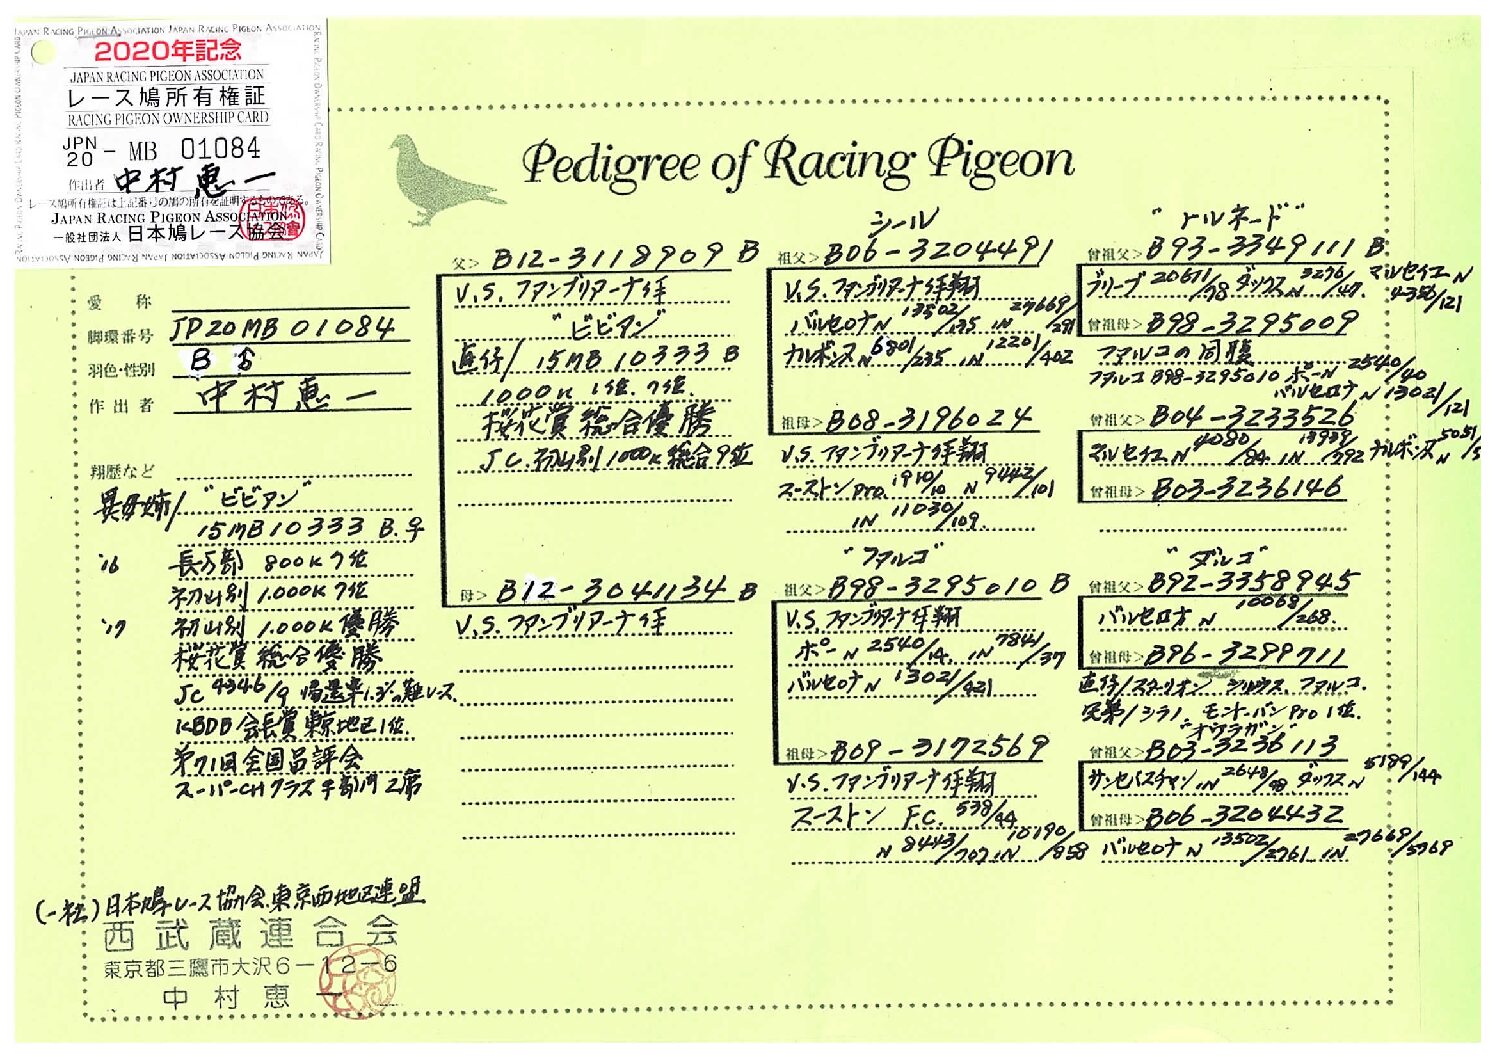 JAPAN RACING PIGEON ASSOCIATION JAPAN RACING PIGEON ASSOCIATION
2020年記念
JAPAN RACING PIGEON ASSOCIATION
レース鳩所有権証
RACING PIGEON OWNERSHIP CARD
JPN
20 - MB 01084
作出者 中村恵一
レース鳩所有権証は上記番号の鳩の所有を証明するものである。
JAPAN RACING PIGEON ASSOCIATION
一般社団法人 日本鳩レース協会
Pedigree of Racing Pigeon
愛 称
脚環番号 JP20MB01084
羽色・性別 B ♂
作出者 中村恵一
翔歴など
異母姉/"ビビアン"
15MB10333 B.♀
'16 長万部 800K 7位
初山別 1.000K 7位
'17 初山別 1.000K優勝
桜花賞総合優勝
JC 4346/9 帰還率1.3%難レース
KBDB会長賞東京地区1位
第71回全国品評会
スーパーCHクラス手部門2席
(一社)日本鳩レース協会.東京西地区連盟
西武蔵連合会
東京都三鷹市大沢6-12-6
中村恵一
父> B12-3118909 B
V.S.ファンブリアーナ作
"ビビアン"
直仔/15MB10333 B
1000K 1位.7位.
桜花賞総合優勝
JC.初山別1000K総合9位
母> B12-3041134 B
V.S.ファンブリアーナ作
シール
祖父> B06-3204491
V.S.ファンブリアーナ作翔
バルセロナN 13502/135 IN 27669/291
ナルボンヌ 6801/235 IN 12201/402
祖母> B08-3196024
V.S.ファンブリアーナ作翔
スーストン Pro. 1910/10 N 9442/101
IN 11030/109.
"ファルコ"
祖父> B98-3295010 B
V.S.ファンブリアーナ作翔
ポーN 2540/14. IN 7841/37
バルセロナN 13021/421
祖母> B09-3172569
V.S.ファンブリアーナ作翔
スーストン F.C. 538/44
N 8443/707 IN 10190/858
"ケルネード"
曾祖父> B93-3349111 B
ブリーブ 20671/78 ダックスN 3276/47. マルセイユN 4356/121
曾祖母> B98-3295009
ファルコの同腹
ファルコ B98-3295010 ポーN 2540/40
バルセロナN 13021/121
曾祖父> B04-3233526
マルセイユN 4080/84 IN 13939/292 ナルボンヌN 5051
曾祖母> B03-3236146
"ダルコ"
曾祖父> B92-3358945
バルセロナ N 10068/268.
曾祖母> B96-3299711
直仔/スターリオン シリウス、ファルコ.
兄弟/シラノ モントーバンPro 1位.
"オウラガン"
曾祖父> B03-3236113
サンセバスチャン.IN 2648/98 ダックスN 5189/144
曾祖母> B06-3204432
バルセロナ N 13502/2761 IN 27669/5769